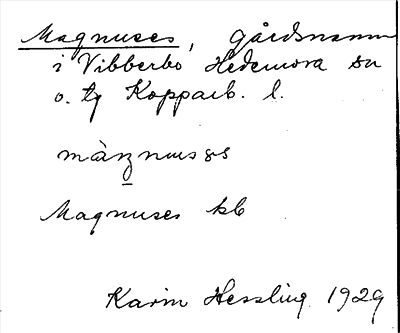 Magnuses, gårdsnamn
i Vibberbo, Hedemora sn
o. tg Kopparb. l.
Magnuses kb
Karin Hessling 1929